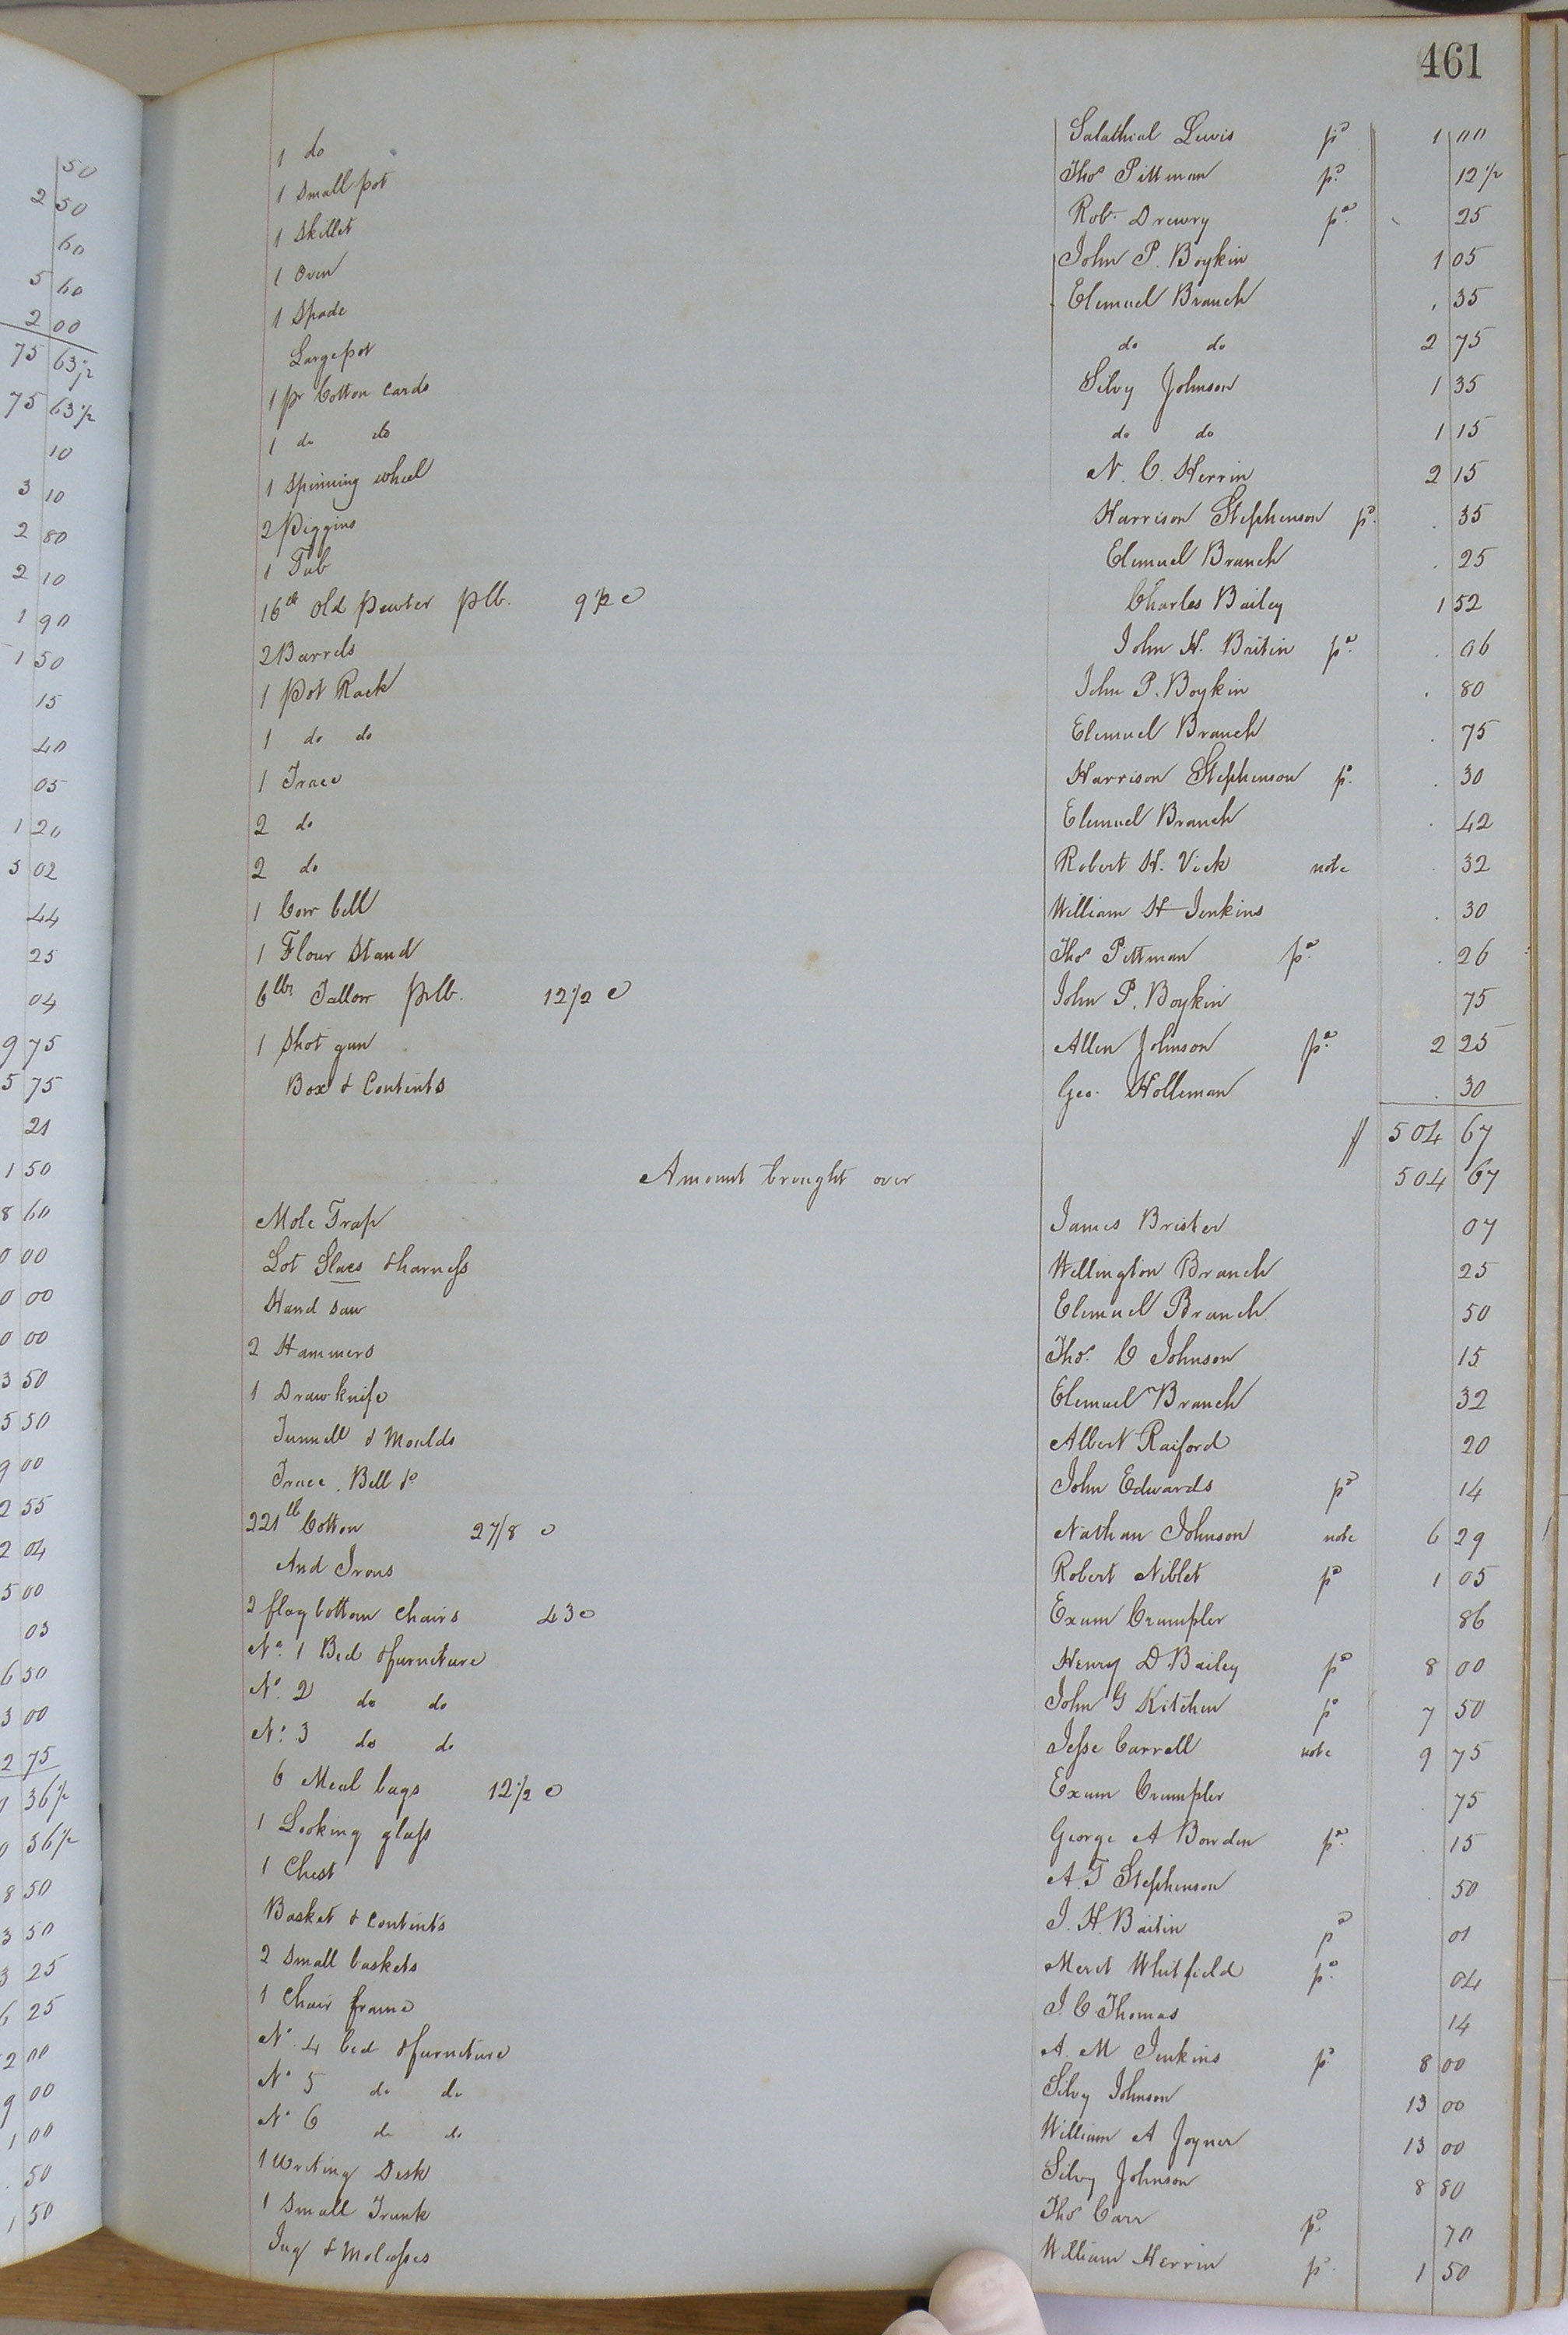 461
1 do Salathial Lewis pd 1 00
1 Small pot Thos Pittman pd 12 1/2
1 Skillet Robt. Drewry pd 25
1 Oven John P. Boykin 1 05
1 Spade Elemuel Branch 35
Large pot do do 2 75
1 pr Cotton Cards Silvy Johnson 1 35
1 do do do do 1 15
1 Spinning wheel N. C. Herrin 2 15
2 Piggins Harrison Stephenson pd 35
1 Tub Elemuel Branch 25
16 lb Old Pewter p lb. 9 1/2 c Charles Bailey 1 52
2 Barrels John H. Britin pd 06
1 Pot Rack John P. Boykin 80
1 do do Elemuel Branch 75
1 Trace Harrison Stephenson pd 30
2 do Elemuel Branch 42
2 do Robert H. Vick note 32
1 Cow bell William H Jenkins 30
1 Flour Stand Thos Pittman pd 26
6 lbs Tallow p lb. 12 1/2 c John P. Boykin 75
1 Shot gun Allen Johnson pd 2 25
Box & Contents Geo. Holleman 30
504 67
Amount brought over 504 67
Mole Trap James Brister 07
Lot Slaes & harness Wellington Branch 25
Hand saw Elemuel Branch 50
2 Hammers Thos. C Johnson 15
1 Draw knife Elemuel Branch 32
Tunnell & Moulds Albert Raiford 20
Trace, Bell &c John Edwards pd 14
221 lb Cotton 2 7/8 c Nathan Johnson note 6 29
And Irons Robert Niblet pd 1 05
2 flag bottom Chairs 43 c Exum Crumpler 86
No. 1 Bed & furniture Henry D. Bailey pd 8 00
No. 2 do do John G Kitchen pd 7 50
No. 3 do do Jesse Carrell note 9 75
6 Meal bags 12 1/2 c Exum Crumpler 75
1 Looking glass George A Bowden pd 15
1 Chest A. T Stephenson 50
Basket & Contents J. H. Britin pd 01
2 Small baskets Merit Whitfield pd 04
1 Chair frame J. C Thomas 14
No 4 bed & furniture A. M Jenkins pd 8 00
No 5 do do Silvy Johnson 13 00
No 6 do do William A Joyner 13 00
1 Writing Desk Silvy Johnson 8 80
1 Small Trunk Thos Carr pd 70
Jug & Molasses William Herrin pd 1 50
50
2 50
60
5 60
2 00
75 63 1/2
75 63 1/2
10
3 10
2 80
2 10
1 90
1 50
15
40
05
1 20
3 02
44
25
04
9 75
5 75
21
1 50
8 60
0 00
0 00
0 00
3 50
5 50
9 00
2 55
2 04
5 00
03
6 50
3 00
2 75
36 1/2
0 36 1/2
8 50
3 50
3 25
6 25
2 00
9 00
1 00
50
1 50